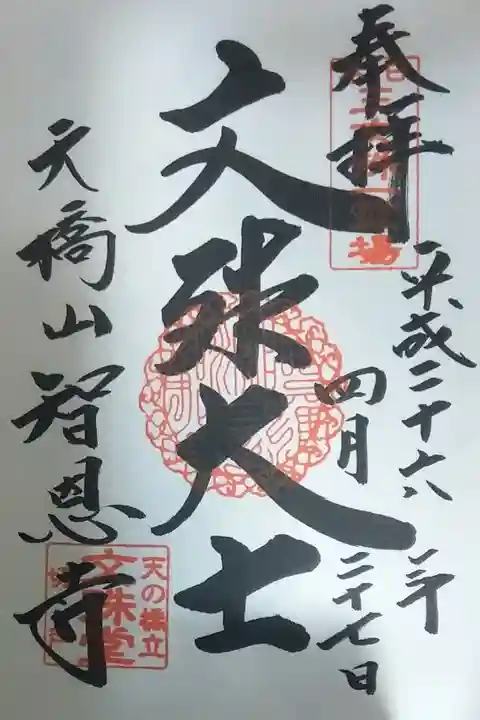 奉拝
平成二十六年
四月二十七日
文殊大士
天橋山智恩寺
天の橋立
文殊堂
切戸